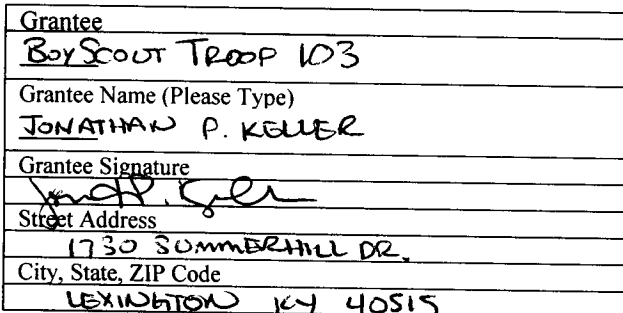 Grantee
BOY SCOUT TROOP 103
Grantee Name (Please Type)
JONATHAN P. KELLER
Grantee Signature
Street Address
1730 SUMMERHILL DR.
City, State, ZIP Code
LEXINGTON KY 40515